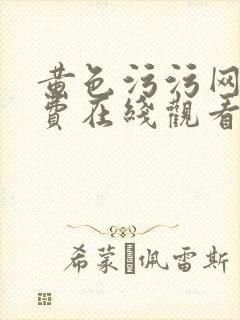 黄色污污网
费在线觀看
希蒙·佩雷斯